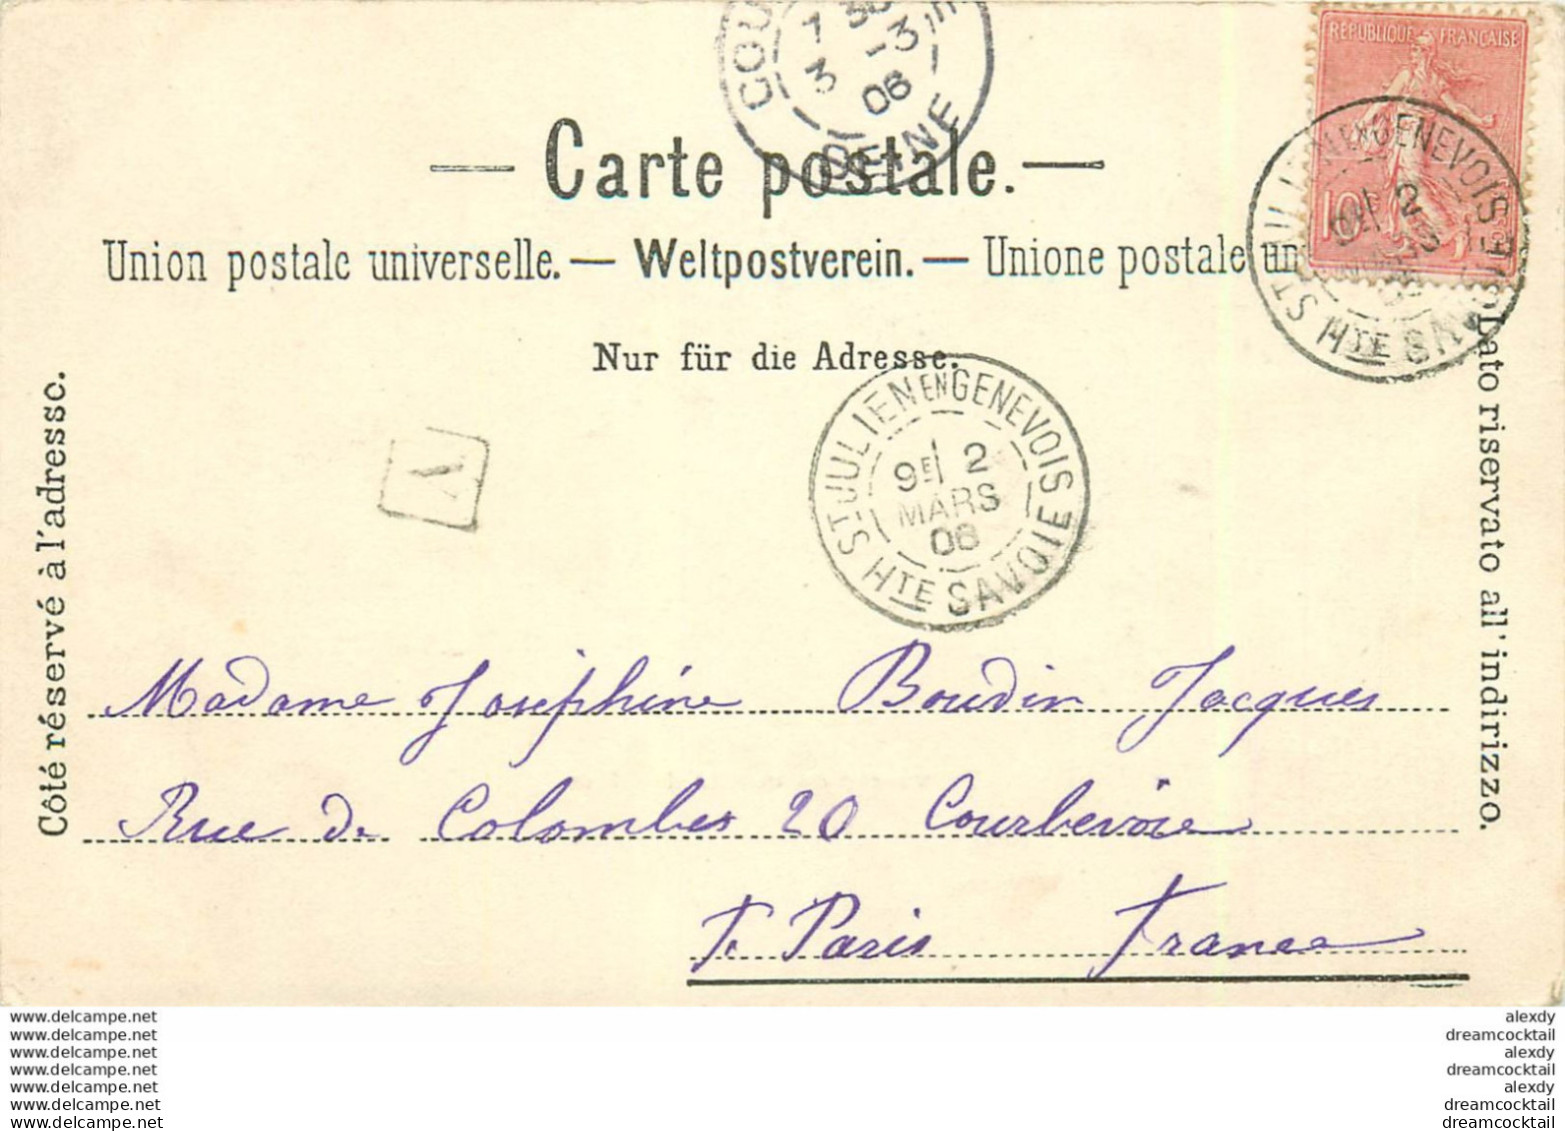 COU
7 30
3 -3
06
SEINE
RÉPUBLIQUE FRANÇAISE
10c
— Carte postale. —
Union postale universelle. — Weltpostverein. — Unione postale un
Nur für die Adresse.
Côté réservé à l'adresse.
Dato riservato all'indirizzo.
ST JULIEN EN GENEVOIS
9E 2
MARS
06
HTE SAVOIE
ST JULIEN EN GENEVOIS
9E 2
MARS
06
HTE SAVOIE
A
Madame Joséphine Boudin Jacques
Rue de Colombes 20 Courbevoie
Paris France
www.delcampe.net
www.delcampe.net
www.delcampe.net
www.delcampe.net
www.delcampe.net
www.delcampe.net
www.delcampe.net
alexdy
dreamcocktail
alexdy
dreamcocktail
alexdy
dreamcocktail
dreamcocktail